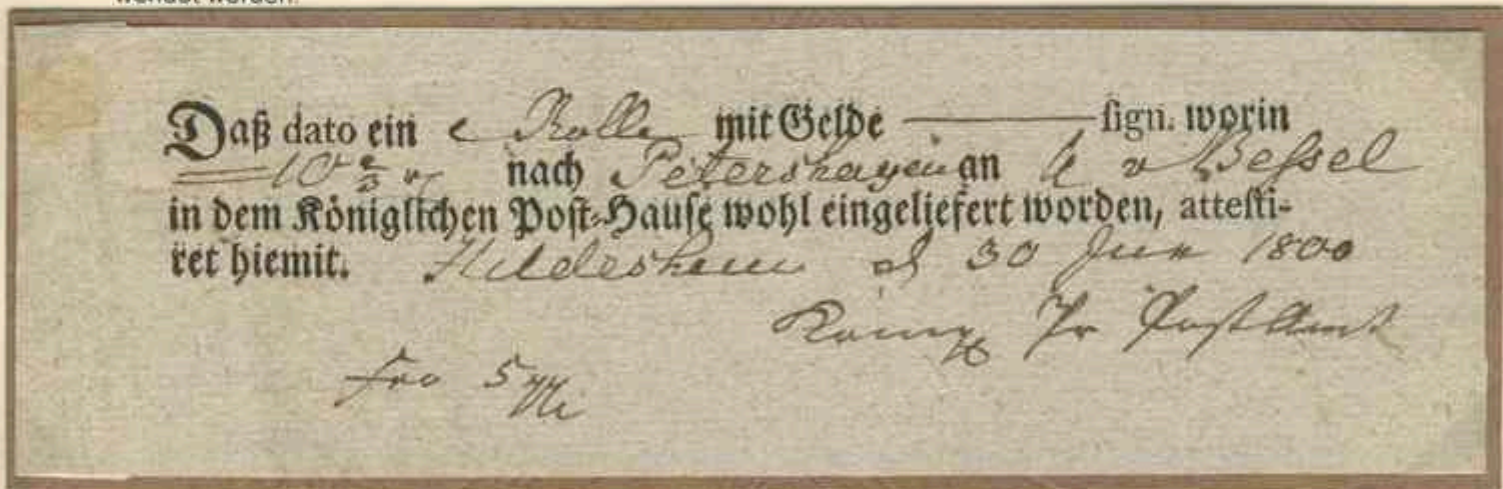 Daß dato ein e Rolle mit Gelde — sign. worin
10 2/3 nach Petershagen an H v Bessel
in dem Königlichen Post-Hause wohl eingeliefert worden, attesti-
ret hiemit. Hildesheim d 30 Jun 1800
Königl Pr Post Amt
fro 5